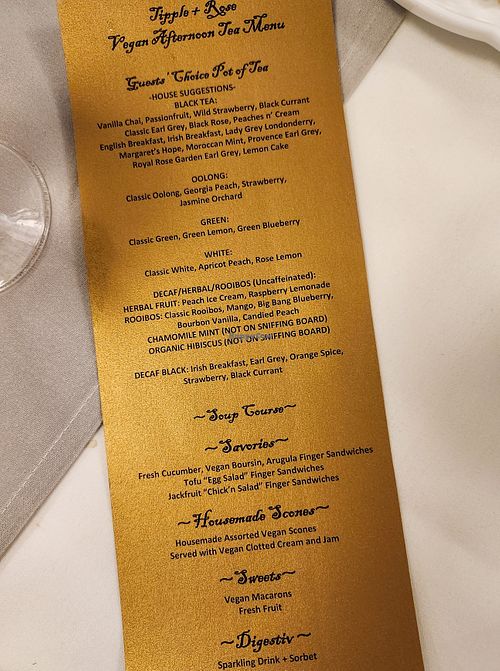 Tipple + Rose
Vegan Afternoon Tea Menu
Guests' Choice Pot of Tea
-HOUSE SUGGESTIONS-
BLACK TEA:
Vanilla Chai, Passionfruit, Wild Strawberry, Black Currant
Classic Earl Grey, Black Rose, Peaches n' Cream
English Breakfast, Irish Breakfast, Lady Grey Londonderry,
Margaret's Hope, Moroccan Mint, Provence Earl Grey,
Royal Rose Garden Earl Grey, Lemon Cake
OOLONG:
Classic Oolong, Georgia Peach, Strawberry,
Jasmine Orchard
GREEN:
Classic Green, Green Lemon, Green Blueberry
WHITE:
Classic White, Apricot Peach, Rose Lemon
DECAF/HERBAL/ROOIBOS (Uncaffeinated):
HERBAL FRUIT: Peach Ice Cream, Raspberry Lemonade
ROOIBOS: Classic Rooibos, Mango, Big Bang Blueberry,
Bourbon Vanilla, Candied Peach
CHAMOMILE MINT (NOT ON SNIFFING BOARD)
ORGANIC HIBISCUS (NOT ON SNIFFING BOARD)
DECAF BLACK: Irish Breakfast, Earl Grey, Orange Spice,
Strawberry, Black Currant
~Soup Course~
~Savories~
Fresh Cucumber, Vegan Boursin, Arugula Finger Sandwiches
Tofu "Egg Salad" Finger Sandwiches
Jackfruit "Chick'n Salad" Finger Sandwiches
~Housemade Scones~
Housemade Assorted Vegan Scones
Served with Vegan Clotted Cream and Jam
~Sweets~
Vegan Macarons
Fresh Fruit
~Digestiv~
Sparkling Drink + Sorbet